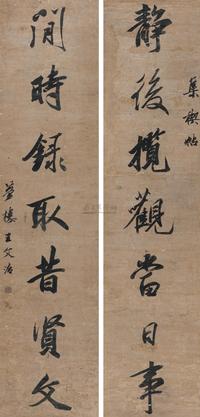 集禊帖
靜後攬觀當日事
閒時録取昔賢文
夢樓王文治